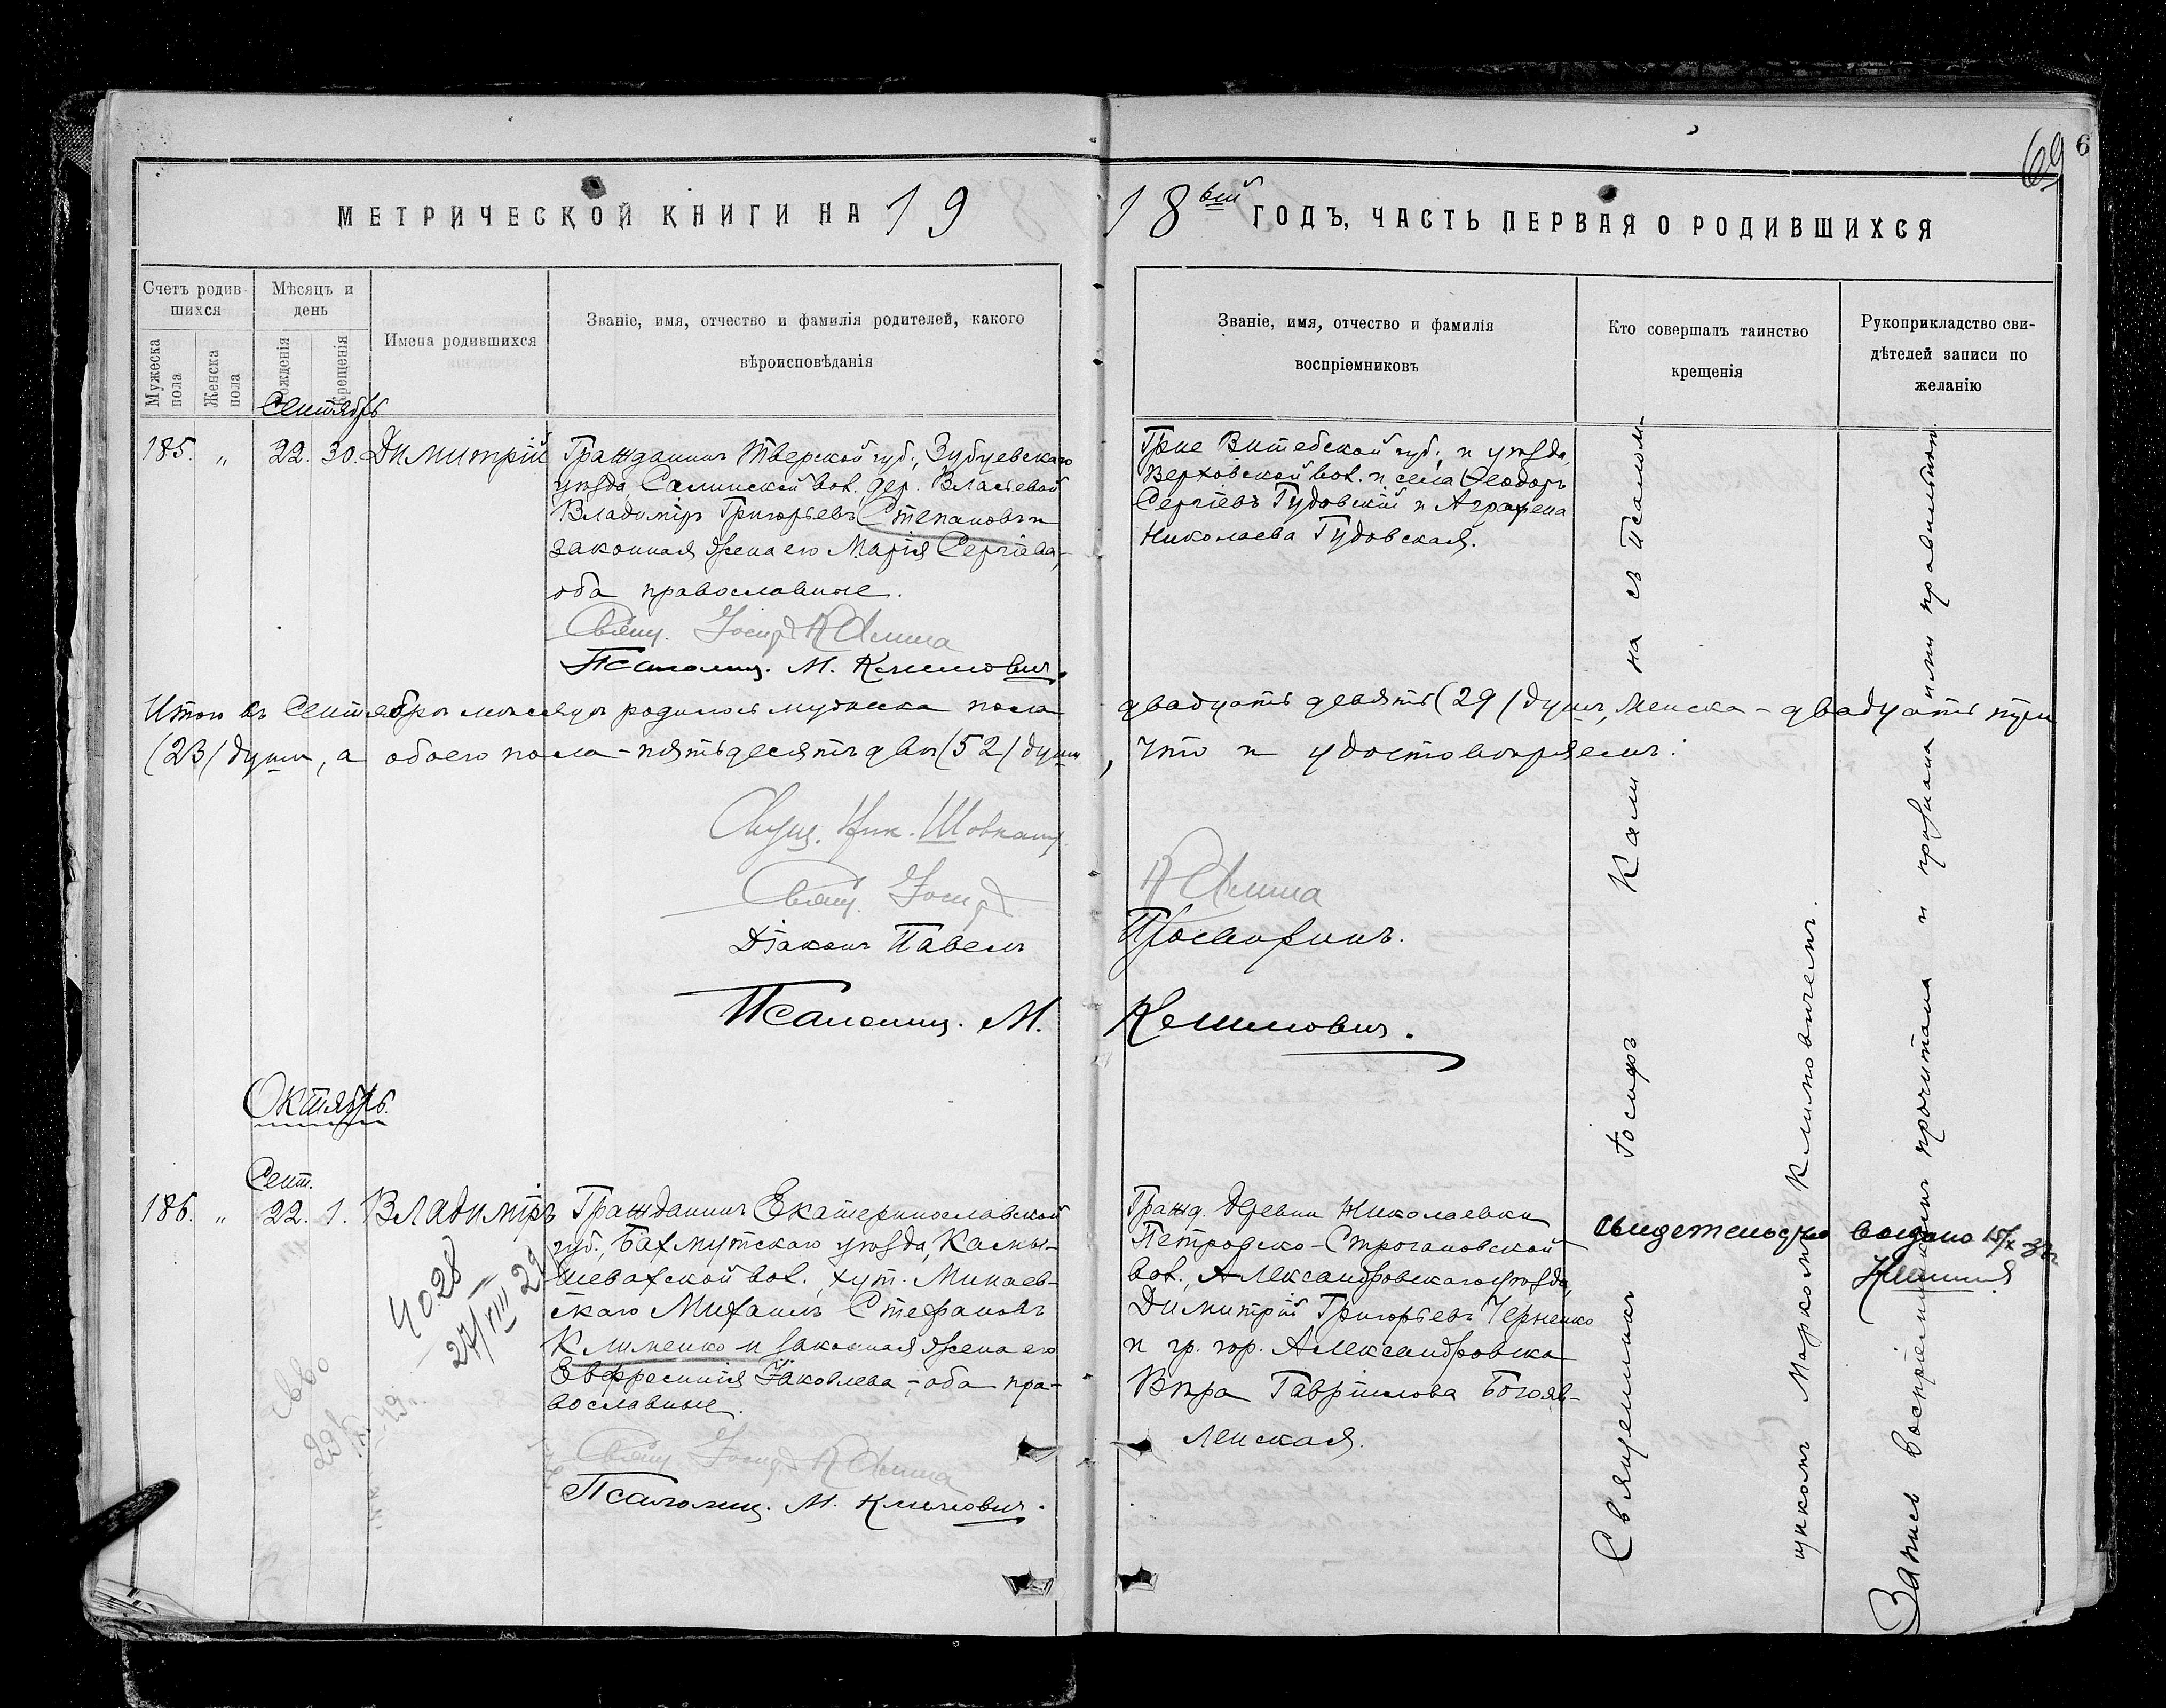 69
6
МЕТРИЧЕСКОЙ КНИГИ НА 19
18ый ГОДЪ, ЧАСТЬ ПЕРВАЯ О РОДИВШИХСЯ
Счетъ родив-
шихся
Мужеска
пола
Женска
пола
Мѣсяцъ и
день
Рожденія
Крещенія
Имена родившихся
Званіе, имя, отчество и фамилія родителей, какого
вѣроисповѣданія
Званіе, имя, отчество и фамилія
воспріемниковъ
Кто совершалъ таинство
крещенія
Рукоприкладство сви-
дѣтелей записи по
желанію
Сентябрь
185. „ 22. 30. Димитрій
Гражданинъ Тверской губ., Зубцевскаго
уѣзда, Салинской вол. дер. Власьевой
Владиміръ Григорьевъ Степановъ и
законная жена его Марія Сергіева,-
оба православные.
Свящ. Іосифъ Калина
Псаломщ. М. Климовичъ.
Гр-не Витебской губ. и уѣзда,
Верховской вол. и села Ѳеодоръ
Сергіевъ Гудовскій и Аграфена
Николаева Гудовская.
Итого въ Сентябрѣ мѣсяцѣ родилось мужеска пола
двадцать девять (29) душъ, женска - двадцать три
(23) души, а обоего пола - пятьдесятъ двѣ (52) души
, что и удостовѣряемъ:
Свящ. Ник.
Свящ. Іосифъ
Калина
Діаконъ Павелъ
Просвиринъ.
Псаломщ. М.
Климовичъ.
Октябрь.
Сент.
186. „ 22. 1. Владиміръ
4028
27/VIII 29
Гражданинъ Екатеринославской
губ., Бахмутскаго уѣзда, Камы-
шевахской вол., хут. Минаев-
скаго Михаилъ Стефановъ
Клименко и законная жена его
Евфросинія Іаковлева,- оба пра-
вославные.
Свящ. Іосифъ Калина
Псаломщ. М. Климовичъ.
Гражд. деревни Николаевки
Петровско-Строгановской
вол., Александровскаго уѣзда,
Димитрій Григорьевъ Черненко
и гр. гор. Александровска
Вѣра Гавріилова Богояв-
ленская.
Священникъ Іосифъ Калина съ Псалом-
щикомъ Маркомъ Климовичемъ.
свидетельство выдано
Запись воспріемникамъ прочитана и признана ими правильной.